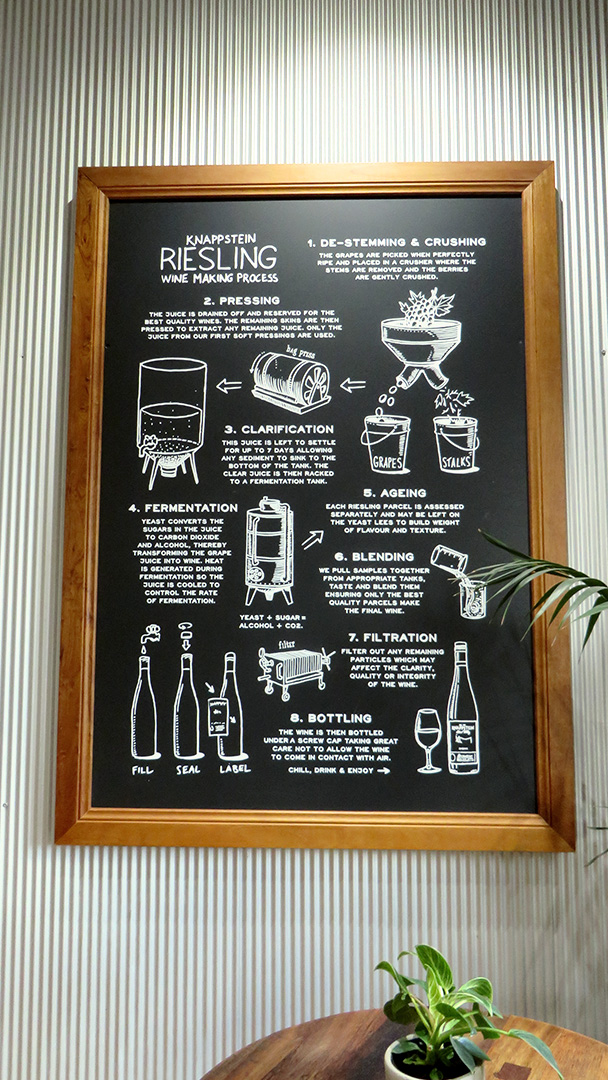 KNAPPSTEIN
RIESLING
WINE MAKING PROCESS
1. DE-STEMMING & CRUSHING
THE GRAPES ARE PICKED WHEN PERFECTLY
RIPE AND PLACED IN A CRUSHER WHERE THE
STEMS ARE REMOVED AND THE BERRIES
ARE GENTLY CRUSHED.
2. PRESSING
THE JUICE IS DRAINED OFF AND RESERVED FOR THE
BEST QUALITY WINES. THE REMAINING SKINS ARE THEN
PRESSED TO EXTRACT ANY REMAINING JUICE. ONLY THE
JUICE FROM OUR FIRST SOFT PRESSINGS ARE USED.
bag press
GRAPES
STALKS
3. CLARIFICATION
THIS JUICE IS LEFT TO SETTLE
FOR UP TO 7 DAYS ALLOWING
ANY SEDIMENT TO SINK TO THE
BOTTOM OF THE TANK. THE
CLEAR JUICE IS THEN RACKED
TO A FERMENTATION TANK.
4. FERMENTATION
YEAST CONVERTS THE
SUGARS IN THE JUICE
TO CARBON DIOXIDE
AND ALCOHOL, THEREBY
TRANSFORMING THE GRAPE
JUICE INTO WINE. HEAT
IS GENERATED DURING
FERMENTATION SO THE
JUICE IS COOLED TO
CONTROL THE RATE
OF FERMENTATION.
YEAST + SUGAR =
ALCOHOL + CO2.
5. AGEING
EACH RIESLING PARCEL IS ASSESSED
SEPARATELY AND MAY BE LEFT ON
THE YEAST LEES TO BUILD WEIGHT
OF FLAVOUR AND TEXTURE.
6. BLENDING
WE PULL SAMPLES TOGETHER
FROM APPROPRIATE TANKS,
TASTE AND BLEND THEM
ENSURING ONLY THE BEST
QUALITY PARCELS MAKE
THE FINAL WINE.
7. FILTRATION
FILTER OUT ANY REMAINING
PARTICLES WHICH MAY
AFFECT THE CLARITY,
QUALITY OR INTEGRITY
OF THE WINE.
filter
8. BOTTLING
THE WINE IS THEN BOTTLED
UNDER A SCREW CAP TAKING GREAT
CARE NOT TO ALLOW THE WINE
TO COME IN CONTACT WITH AIR.
CHILL, DRINK & ENJOY →
FILL
SEAL
LABEL